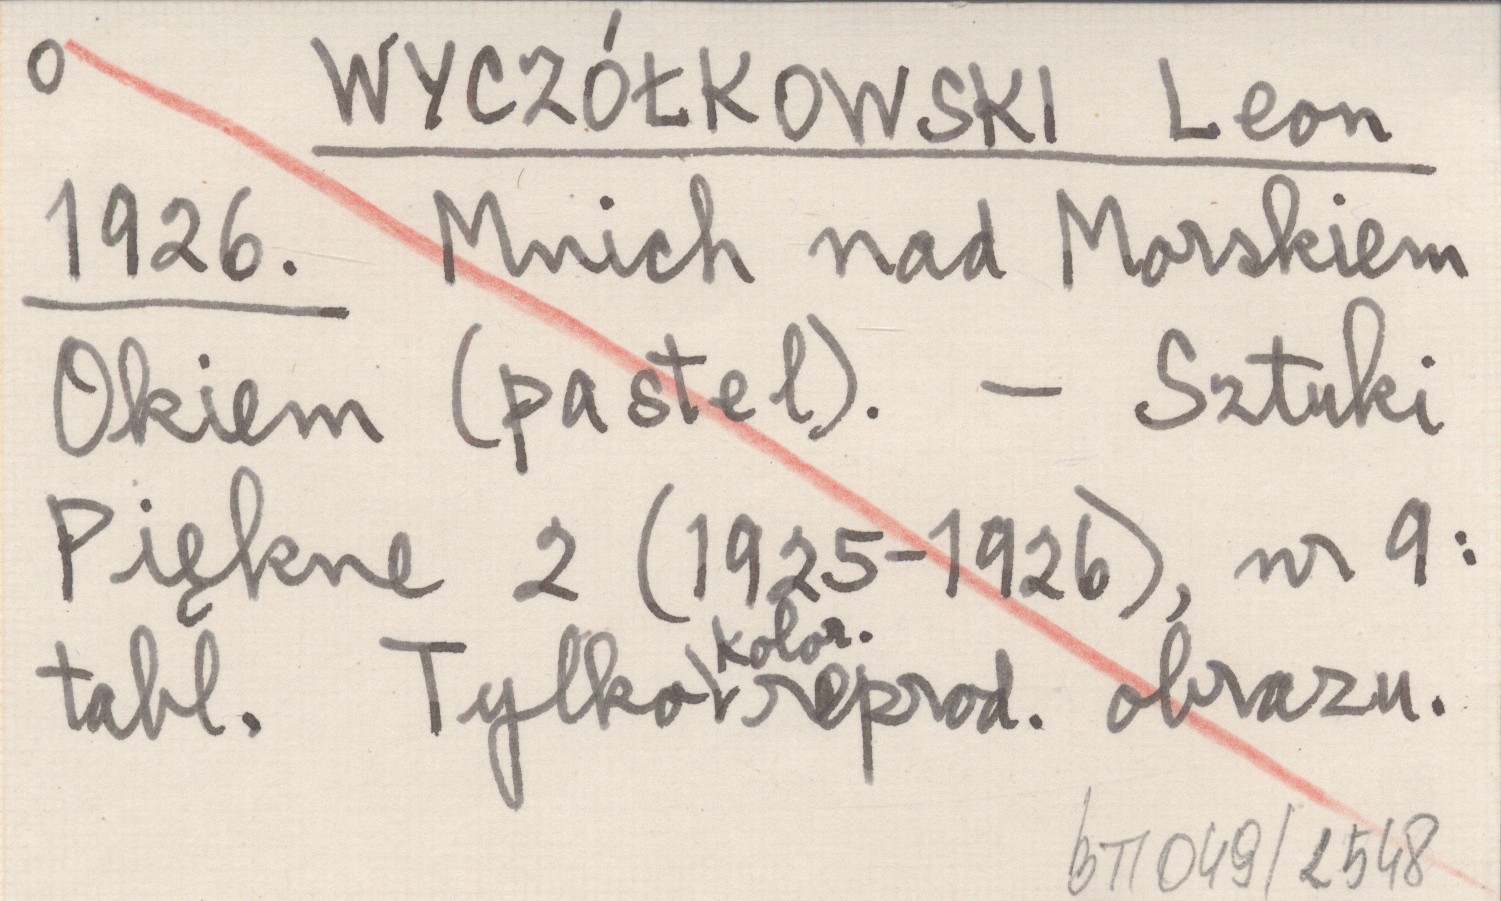 o WYCZÓŁKOWSKI Leon
1926. Mnich nad Morskiem
Okiem (pastel). – Sztuki
Piękne 2 (1925-1926), nr 9:
kolor.
tabl. Tylko reprod. obrazu.
BTT 049/2548